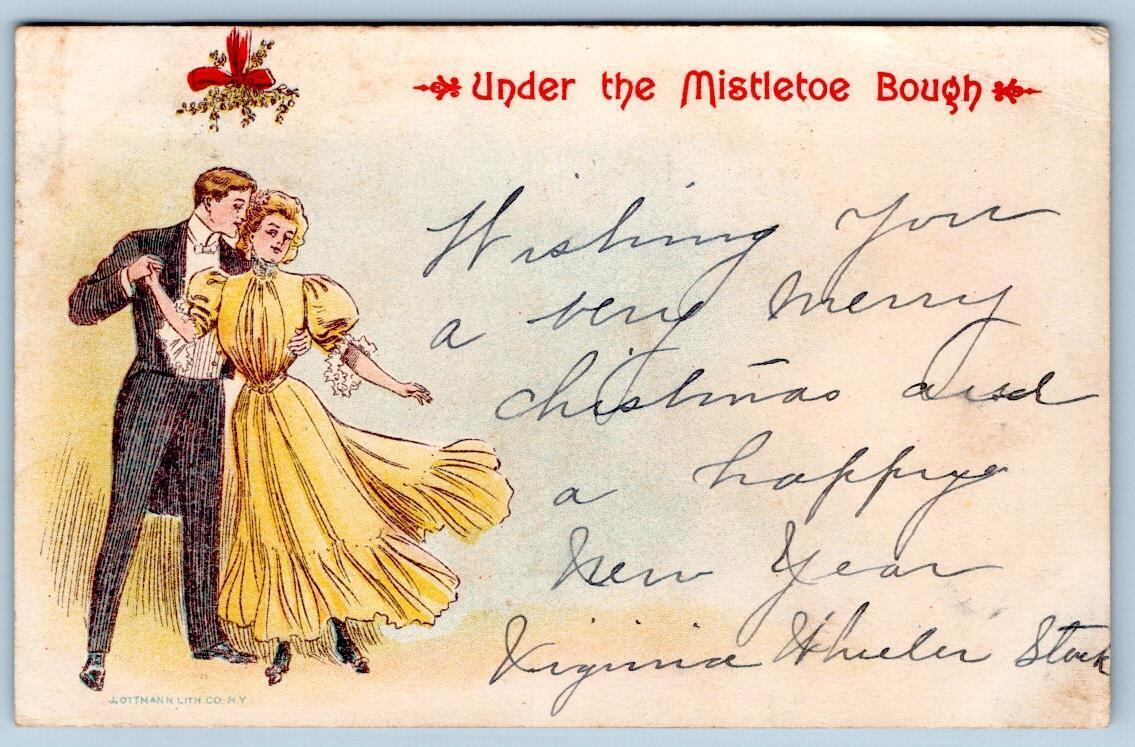 Under the Mistletoe Bough
Wishing you
a very merry
Christmas and
a happy
New Year
Virginia Wheeler Stock
J. OTTMANN LITH. CO. N.Y.